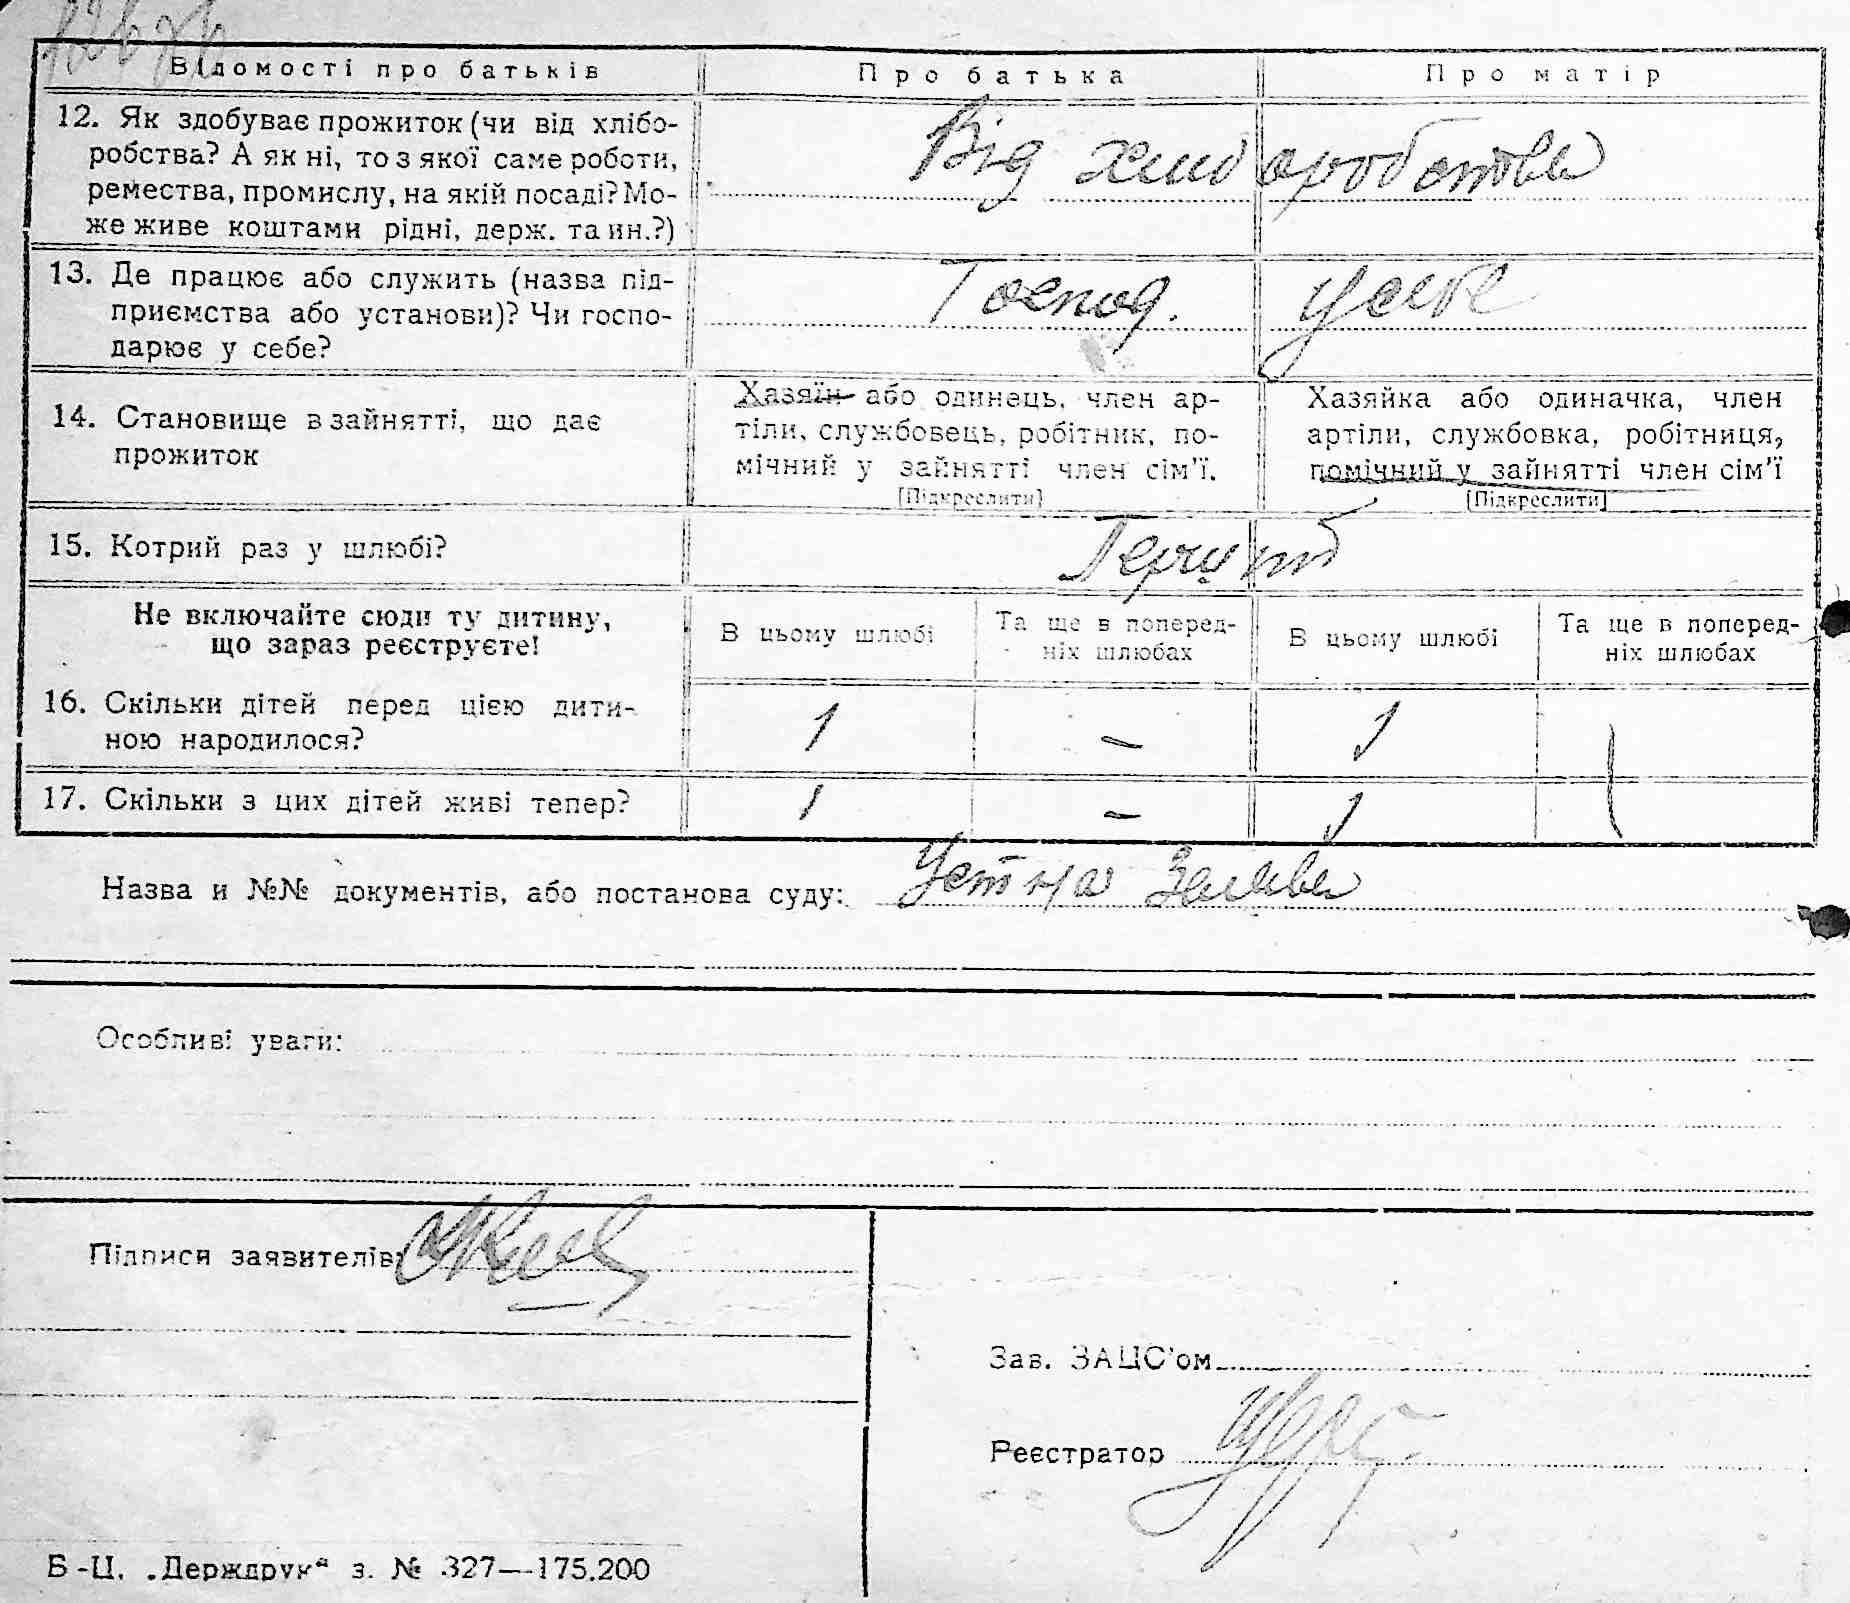 Відомості про батьків
Про батька
Про матір
12. Як здобуває прожиток (чи від хлібо-
робства? А як ні, то з якої саме роботи,
ремества, промислу, на якій посаді? Мо-
же живе коштами рідні, держ. та ин.?)
Від хліборобства
13. Де працює або служить (назва під-
приємства або установи)? Чи госпо-
дарює у себе?
Господ. у себе
14. Становище в зайнятті, що дає
прожиток
Хазяїн або одинець, член ар-
тіли, службовець, робітник, по-
мічний у зайнятті член сім'ї.
[Підкреслити]
Хазяйка або одиначка, член
артіли, службовка, робітниця,
помічний у зайнятті член сім'ї
[Підкреслити]
15. Котрий раз у шлюбі?
Не включайте сюди ту дитину,
що зараз реєструєте!
В цьому шлюбі
Та ще в поперед-
ніх шлюбах
В цьому шлюбі
Та ще в поперед-
ніх шлюбах
16. Скільки дітей перед цією дити-
ною народилося?
1 – 1
17. Скільки з цих дітей живі тепер?
1 – 1
Назва и №№ документів, або постанова суду: Устна Заява
Особливі уваги:
Підписи заявителів:
Зав. ЗАЦС'ом
Реєстратор
Б-Ц. „Держдрук“ з. № 327—175.200